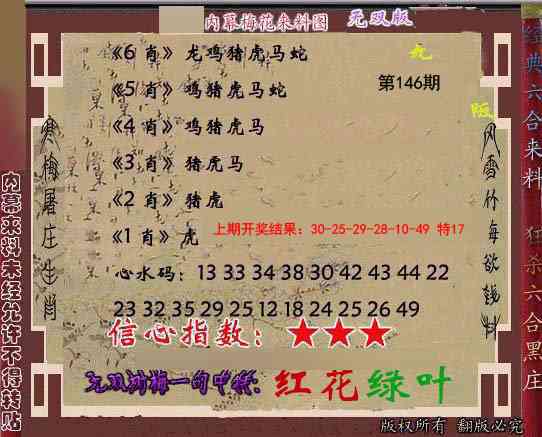 内幕梅花来料图 无双版
《6 肖》 龙鸡猪虎马蛇
第146期
《5 肖》 鸡猪虎马蛇
《4 肖》 鸡猪虎马
《3 肖》 猪虎马
《2 肖》 猪虎
上期开奖结果：30-25-29-28-10-49 特17
《1 肖》 虎
心水码： 13 33 34 38 30 42 43 44 22
23 32 35 29 25 12 18 24 25 26 49
信心指数：★★★
无双刘梅一句中特: 红花绿叶
版权所有 翻版必究
内幕来料未经允许不得转贴
寒梅屠庄生肖
风雪竹每欲钱料
经典六合来料
狂杀六合黑庄